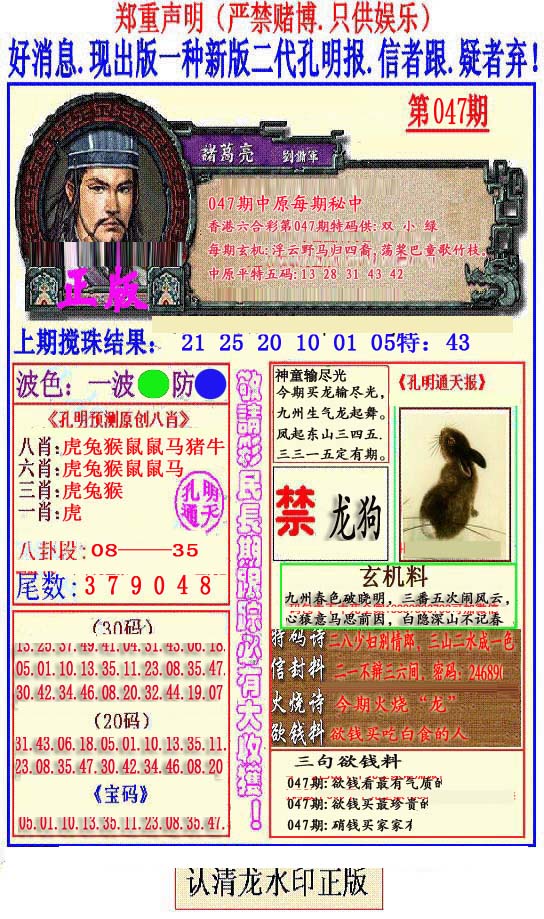 郑重声明（严禁赌博.只供娱乐）
好消息.现出版一种新版二代孔明报.信者跟.疑者弃!
第047期
諸葛亮 劉備軍
047期中原每期秘中
香港六合彩第047期特码供:双 小 绿
每期玄机:浮云野马归四裔,荡桨巴童歌竹枝.
中原平特五码:13 28 31 43 42
正版
上期搅珠结果: 21 25 20 10 01 05特: 43
波色: 一波 防
《孔明预测原创八肖》
八肖:虎兔猴鼠鼠马猪牛
六肖:虎兔猴鼠鼠马
三肖:虎兔猴
一肖:虎
孔明
通天
八卦段:08——35
尾数:379048
(30码)
13.25.37.49.41.04.31.43.06.18.
05.01.10.13.35.11.23.08.35.47.
30.42.34.46.08.20.32.44.19.07
(20码)
31.43.06.18.05.01.10.13.35.11.
23.08.35.47.30.42.34.46.08.20
《宝码》
05.01.10.13.35.11.23.08.35.47.
敬請彩民長期跟踪必有大收獲!
神童输尽光
今期买龙输尽光,
九州生气龙起舞。
凤起东山三四五.
三三一五定有期。
《孔明通天报》
禁 龙狗
玄机料
九州春色破晓明, 三番五次闹风云,
心猿意马思前因, 白隐深山不记春
特码诗 二八少妇别情郎, 三山二水成一色
信封料 二一不辩三六间, 密码: 246890
火烧诗 今期火烧“龙”
欲钱料 欲钱买吃白食的人
三句欲钱料
047期: 欲钱看最有气质的
047期: 欲钱买最珍贵的
047期: 硝钱买家家才
认清龙水印正版